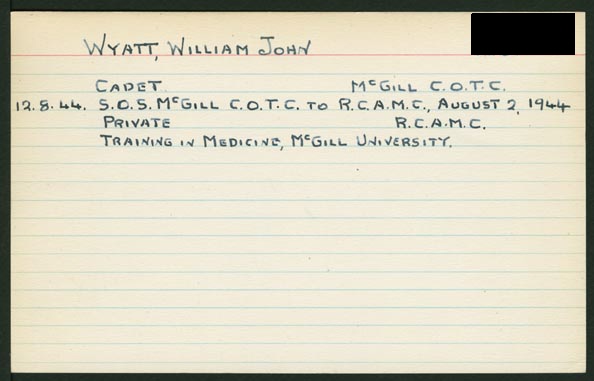 WYATT, WILLIAM JOHN
CADET McGILL C.O.T.C.
12.8.44. S.O.S. McGILL C.O.T.C. TO R.C.A.M.C., AUGUST 2, 1944
PRIVATE R.C.A.M.C.
TRAINING IN MEDICINE, McGILL UNIVERSITY.